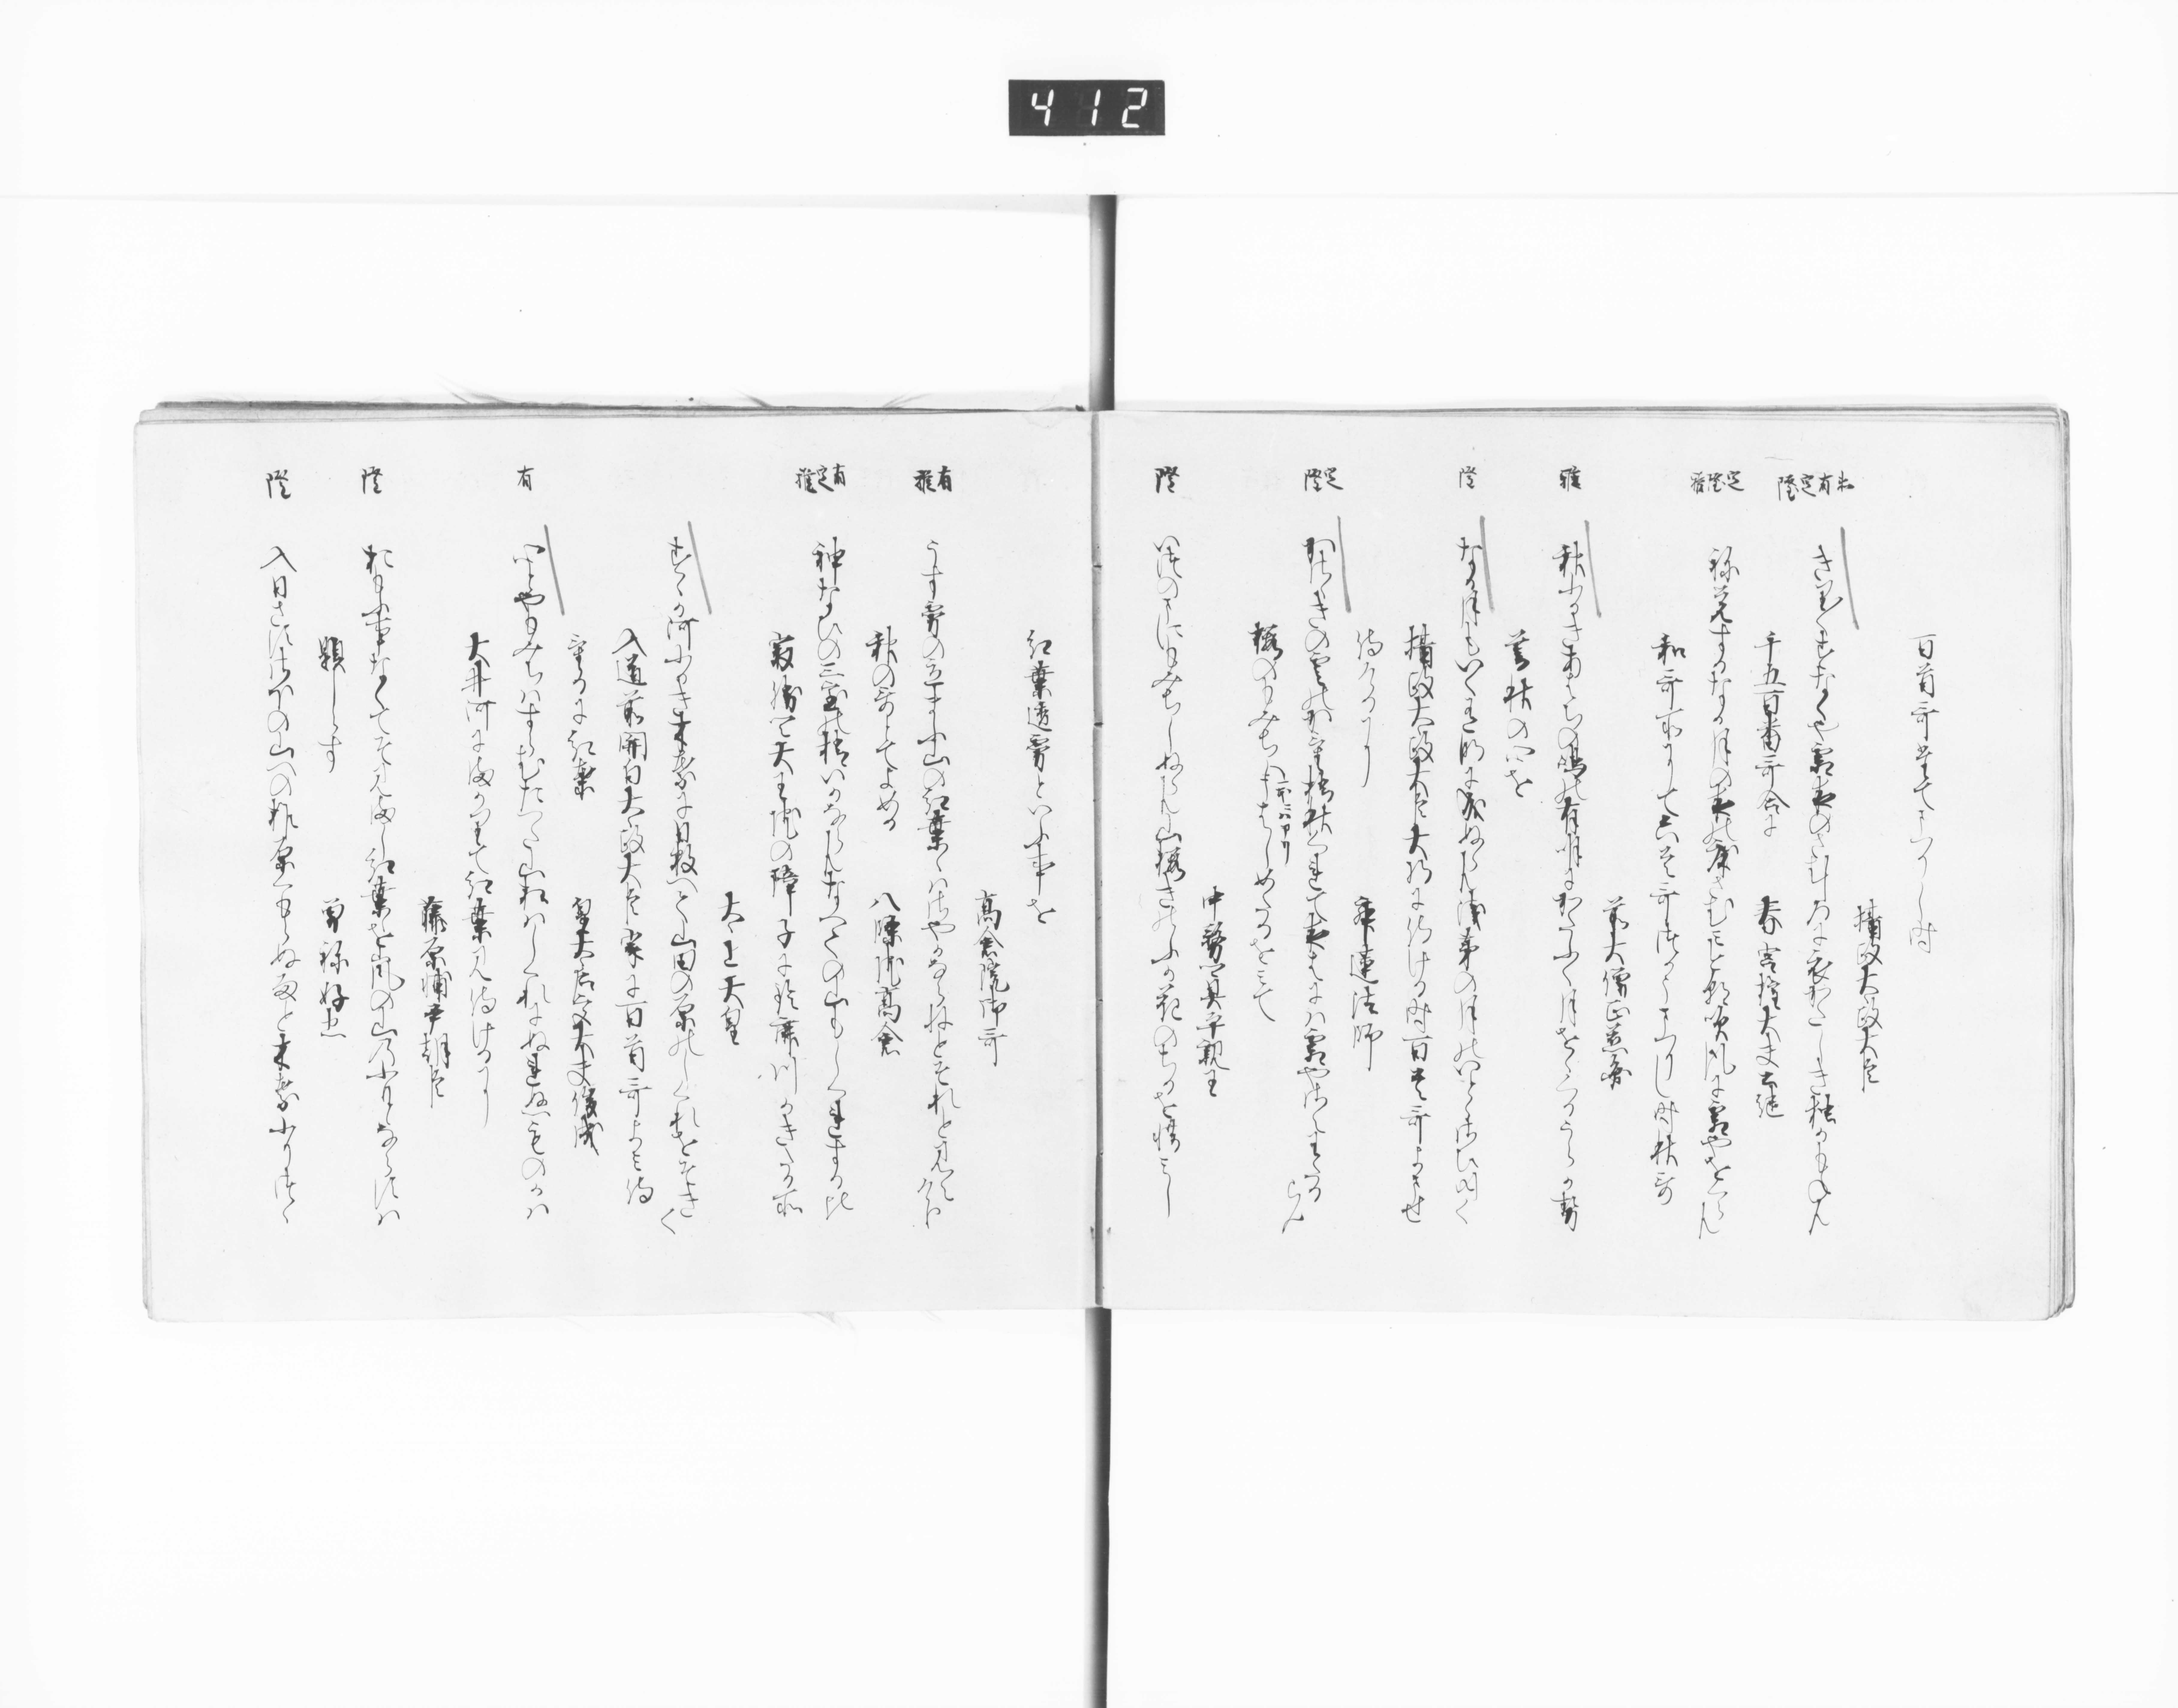 412
百首哥奉てまつりし時
摂政太政大臣
衆有定隆
きり〳〵すなくや霜夜のさむしろに衣かたしき独かもねん
千五百番哥合に
春宮権大夫公継
定隆雅
ね覚するなか月の夜の床さむみと今朝吹風に霜やをくらん
和哥所にて六首哥つかうまつりし時秋哥
前大僧正慈円
雅
秋ふかきあはちの嶋の有明にかたふく月をゝくるうら風
暮秋の心を
隆
なか月もいくあり明に成ぬらん浅茅の月のいとゝさひ行く
摂政太政大臣大将に侍ける時百首哥よませ
侍けるに
寂蓮法師
定隆
かさゝきの雲のかけ橋秋くれて夜半には霜やさえわたるらん
桜のもみちはしめたるをみて
中務卿具平親王
隆
いつのまにもみちしぬらん山桜きのふか花のちるを惜みし
紅葉透霧といふ事を
高倉院御哥
有雅
うす霧の立まふ山の紅葉ゝはさやかならねとそれと見えけり
秋の哥とてよめる
八条院高倉
有定雅
神なひの三室の梢いかならんなへての山もしくれする比
最勝四天王院の障子に鈴鹿川かきたる所
太上天皇
すゝか河ふかき木葉に日数へて山田の原のしくれをそきく
入道前関白太政大臣家に百首哥よみ侍
けるに紅葉
皇太后宮大夫俊成
有
心とやもみちはすらむたつた山松はしくれにぬれぬものかは
大井河にまかりて紅葉見侍けるに
藤原輔尹朝臣
隆
おもふ事なくてそ見まし紅葉ゝを嵐の山のふもとならすは
題しらす
曽祢好忠
隆
入日さすさほの山へのはゝそ原くもらぬ雨と木葉ふりつゝ